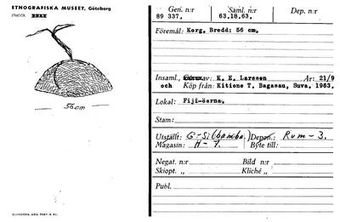 ETNOGRAFISKA MUSEET, Göteborg
56 cm
Gen. n:r
Saml. n:r
Dep. n:r
89 337.
63,18,63.
Föremål: Korg. Bredd: 56 cm.
Insaml. K. E. Larsson År: 21/9
och Köp från: Kitione T, Bagasau, Suva, 1963,
Lokal: Fiji-öarna.
Stam:
Utställt: Depon.: Rum - 3.
Magasin: H - 7. Byte till:
Negat. n:r Bild n:r
Skiopt. „ Kliché „
Publ.